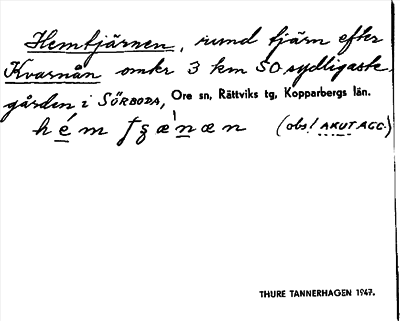 Hemtjärnen, rund tjärn efter
Kvarnån omkr 3 km SO sydligaste
gården i SÖRBODA, Ore sn, Rättviks tg, Kopparbergs län.
hém (obs! AKUT ACC.)
THURE TANNERHAGEN 1947.